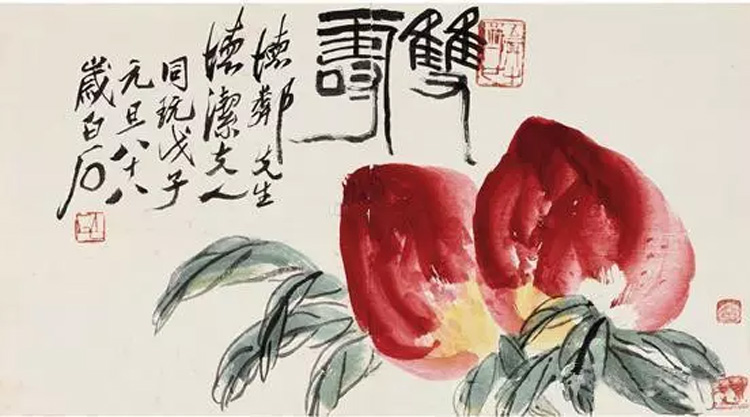 雙壽
鄰先生
潔夫人
同玩戊子
元旦八十八
歲白石